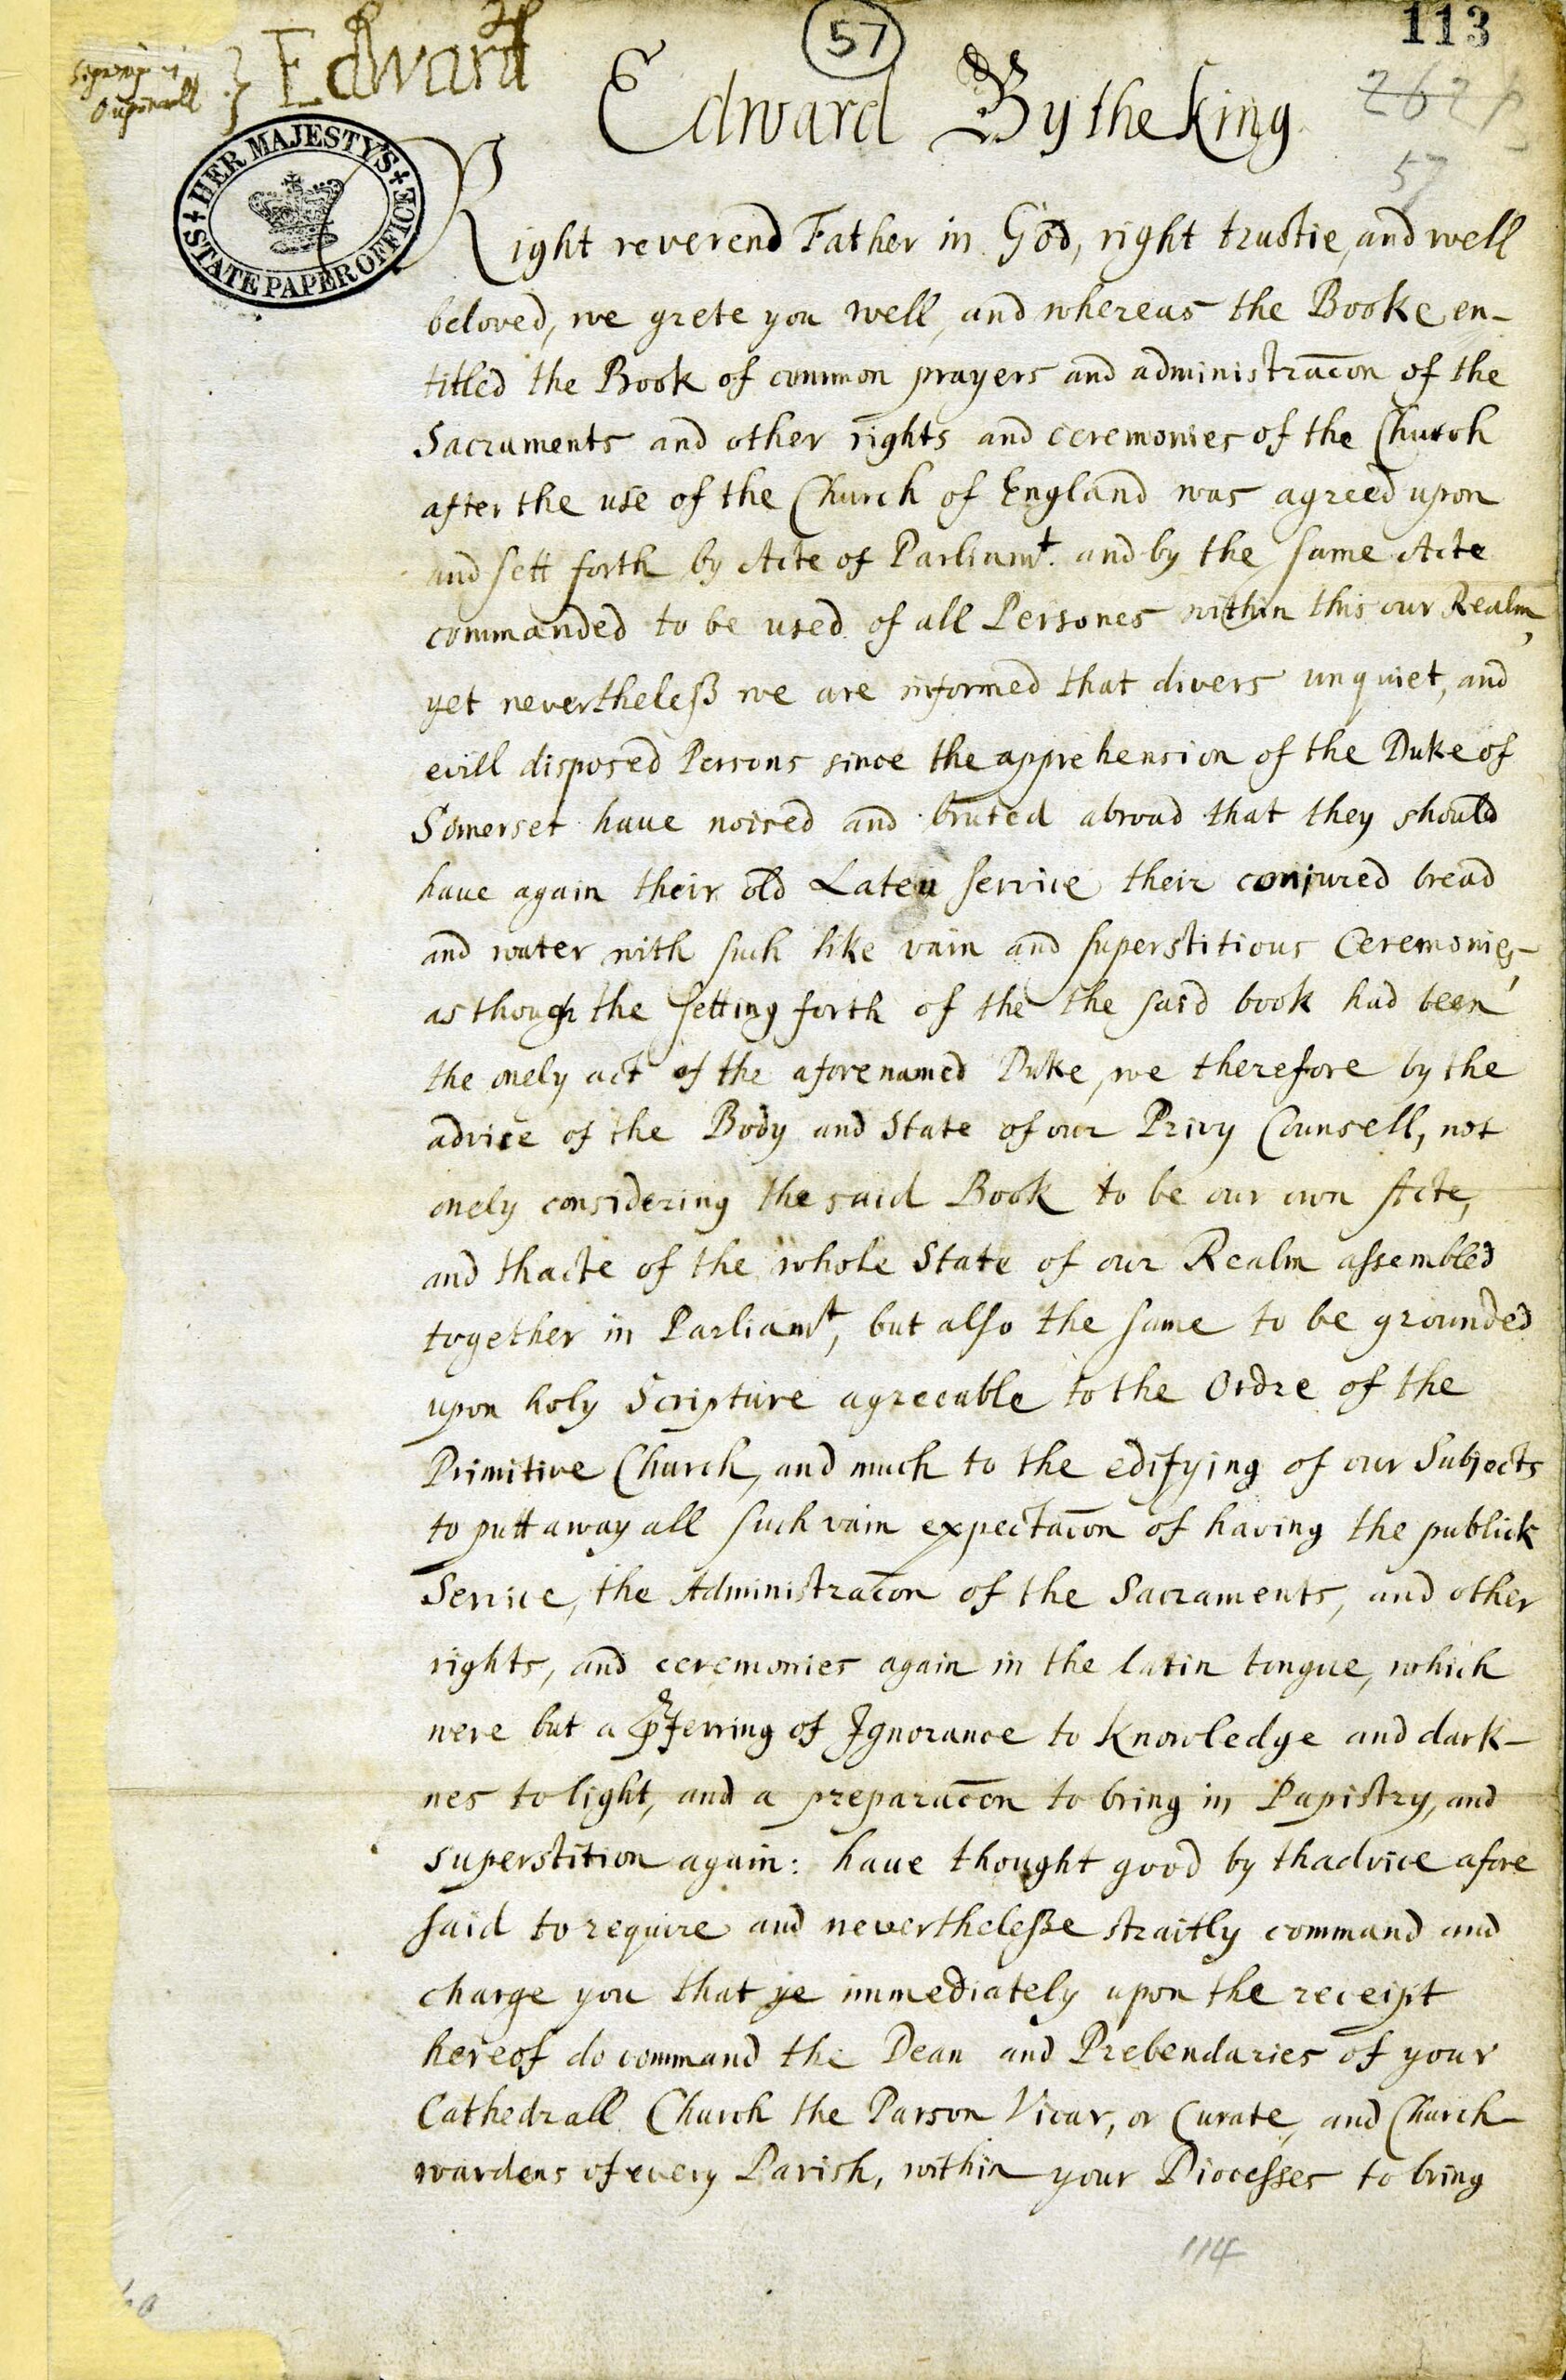 57
113
Edward
Edward By the King
262
57
HER MAJESTY'S
STATE PAPER OFFICE
Right reverend Father in God, right trustie, and well
beloved, we grete you well, and whereas the Booke en-
titled the Book of common prayers and administracon of the
Sacraments and other rights and ceremonies of the Church
after the use of the Church of England was agreed upon
and sett forth by Acte of Parliamt. and by the same Acte
commanded to be used of all Persones within this our Realm,
yet nevertheleß we are informed that divers unquiet, and
evill disposed Persons since the apprehension of the Duke of
Somerset haue noised and bruted abroad that they should
haue again their old Laten service their conjured bread
and water with such like vain and superstitious Ceremonies
as though the setting forth of the the said book had been
the onely act of the aforenamed Duke, we therefore by the
advice of the Body and State of our Privy Counsell, not
onely considering the said Book to be our own Acte,
and thacte of the whole State of our Realm assembled
together in Parliamt, but also the same to be grounded
upon holy Scripture agreeable to the Ordre of the
Primitive Church, and much to the edifying of our Subjects
to putt away all such vain expectacon of having the publick
Service, the Administracon of the Sacraments, and other
rights, and ceremonies again in the latin tongue, which
were but a pferring of Ignorance to knowledge and dark-
nes to light, and a preparacon to bring in Papistry, and
superstition again: haue thought good by thadvice afore
said to require and nevertheleße straitly command and
charge you that ye immediately upon the receipt
hereof do command the Dean and Prebendaries of your
Cathedrall Church the Parson Vicar, or Curate, and Church-
wardens of every Parish, within your Diocesses to bring
114